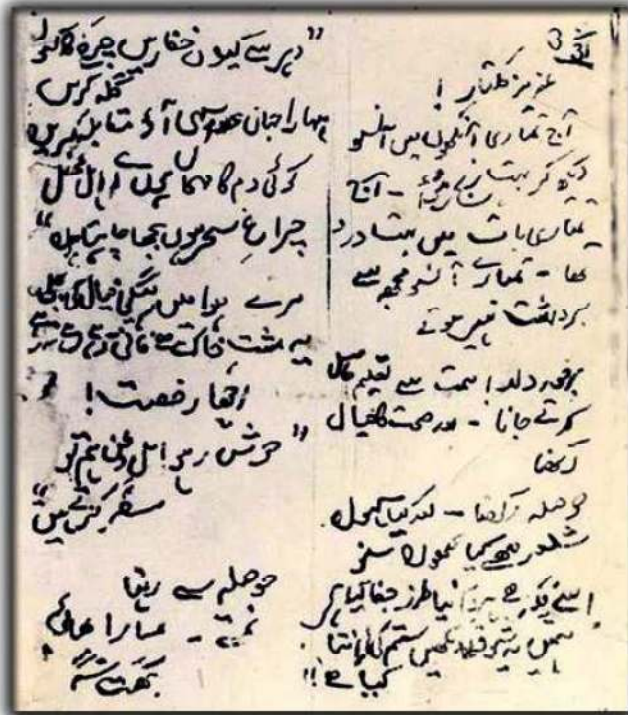 3
عزیز کلتار !
آج تماری آنکھوں میں آنسو
دیکھ کر بہت رنج ہوا - آج
تماری بات میں بہت درد
تھا - تمارے آنسو مجھ سے
برداشت نہیں ہوتے
برخوردار! ہمت سے تعلیم حاصل
کرتے جانا - اور صحت کا خیال
رکھنا
حوصلہ رکھنا - اور کیا لکھوں
کیا لکھوں سنو
اسے یہ فکر ہے ہر دم نیا طرز جفا کیا ہے
ہمیں یہ شوق ہے دیکھیں ستم کی انتہا
کیا ہے !!
"دہر سے کیوں خفا رہیں چرخ کا کیوں
گلہ کریں
سارا جہاں عدو سہی آؤ مقابلہ کریں
کوئی دم کا مہماں ہوں اے اہل محفل
چراغ سحر ہوں بجھا چاہتا ہوں"
مرے ہوا میں رہیگی خیال کی بجلی
یہ مشت خاک ہے فانی رہے رہے نہ رہے
اچھا رخصت !
"خوش رہو اہل وطن ہم تو
سفر کرتے ہیں"
حوصلہ سے رہنا
نمستے - تمارا بھائی
بھگت سنگھ